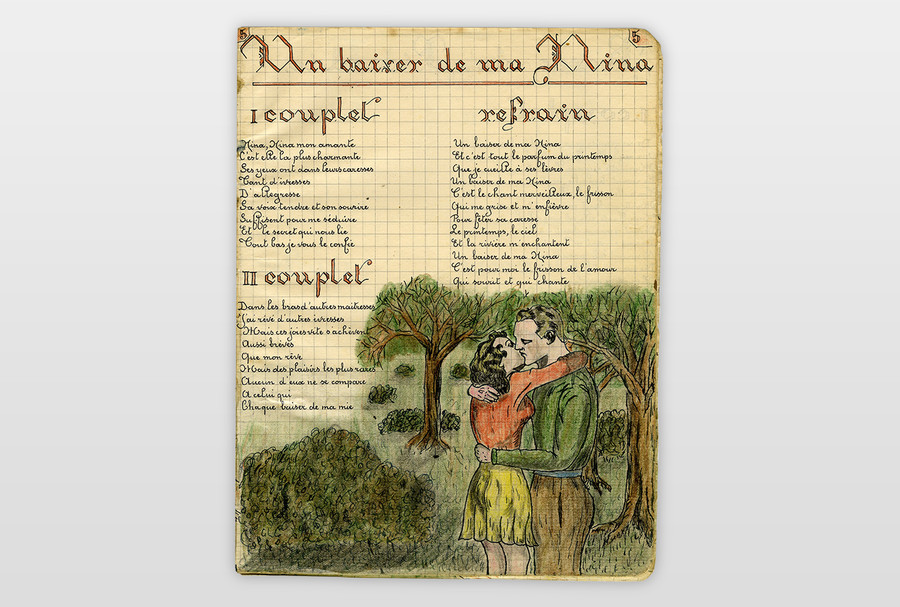 5 5
Un baiser de ma Nina
I couplet
Nina, Nina mon amante
C'est elle la plus charmante
Ses yeux ont dans leurs caresses
Tant d'ivresses
D'allegresse
Sa voix tendre et son sourire
Suffisent pour me séduire
Et le secret qui nous lie
Tout bas je vous le confie
II couplet
Dans les bras d'autres maitresses
J'ai rêvé d'autres ivresses
Mais ces joies vite s'achèvent
Aussi brèves
Que mon rêve
Mais des plaisirs les plus rares
Aucun d'eux ne se compare
A celui qui
Chaque baiser de ma mie
refrain
Un baiser de ma Nina
Et c'est tout le parfum du printemps
Que je cueille à ses lèvres
Un baiser de ma Nina
C'est le chant merveilleux, le frisson
Qui me grise et m'enfièvre
Pour fêter sa caresse
Le printemps, le ciel
Et la rivière m'enchantent
Un baiser de ma Nina
C'est pour moi le frisson de l'amour
Qui sourit et qui chante